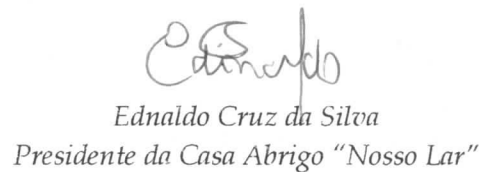 Ednaldo
Ednaldo Cruz da Silva
Presidente da Casa Abrigo "Nosso Lar"